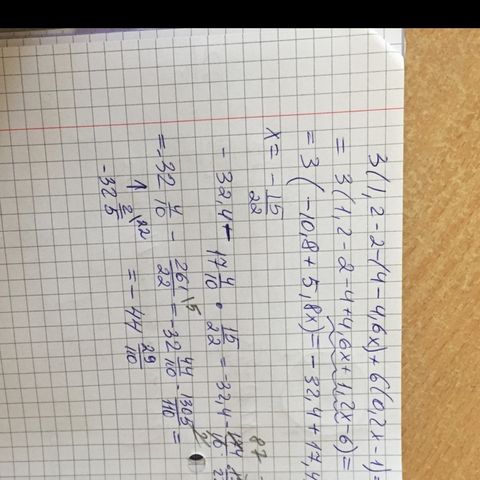 3(1,2-2-(4-4,6x)+6(0,2x-1)=
= 3(1,2-2-4+4,6x+1,2x-6)=
= 3(-10,8+5,8x)=-32,4+17,4
x=-15/22
-32,4-17 4/10 · 15/22 = -32,4-
=-32 4/10 - 261/22 \5 = -32 44/110 - 1305/110 =
-32 2/5 \22 = -44 29/110
87